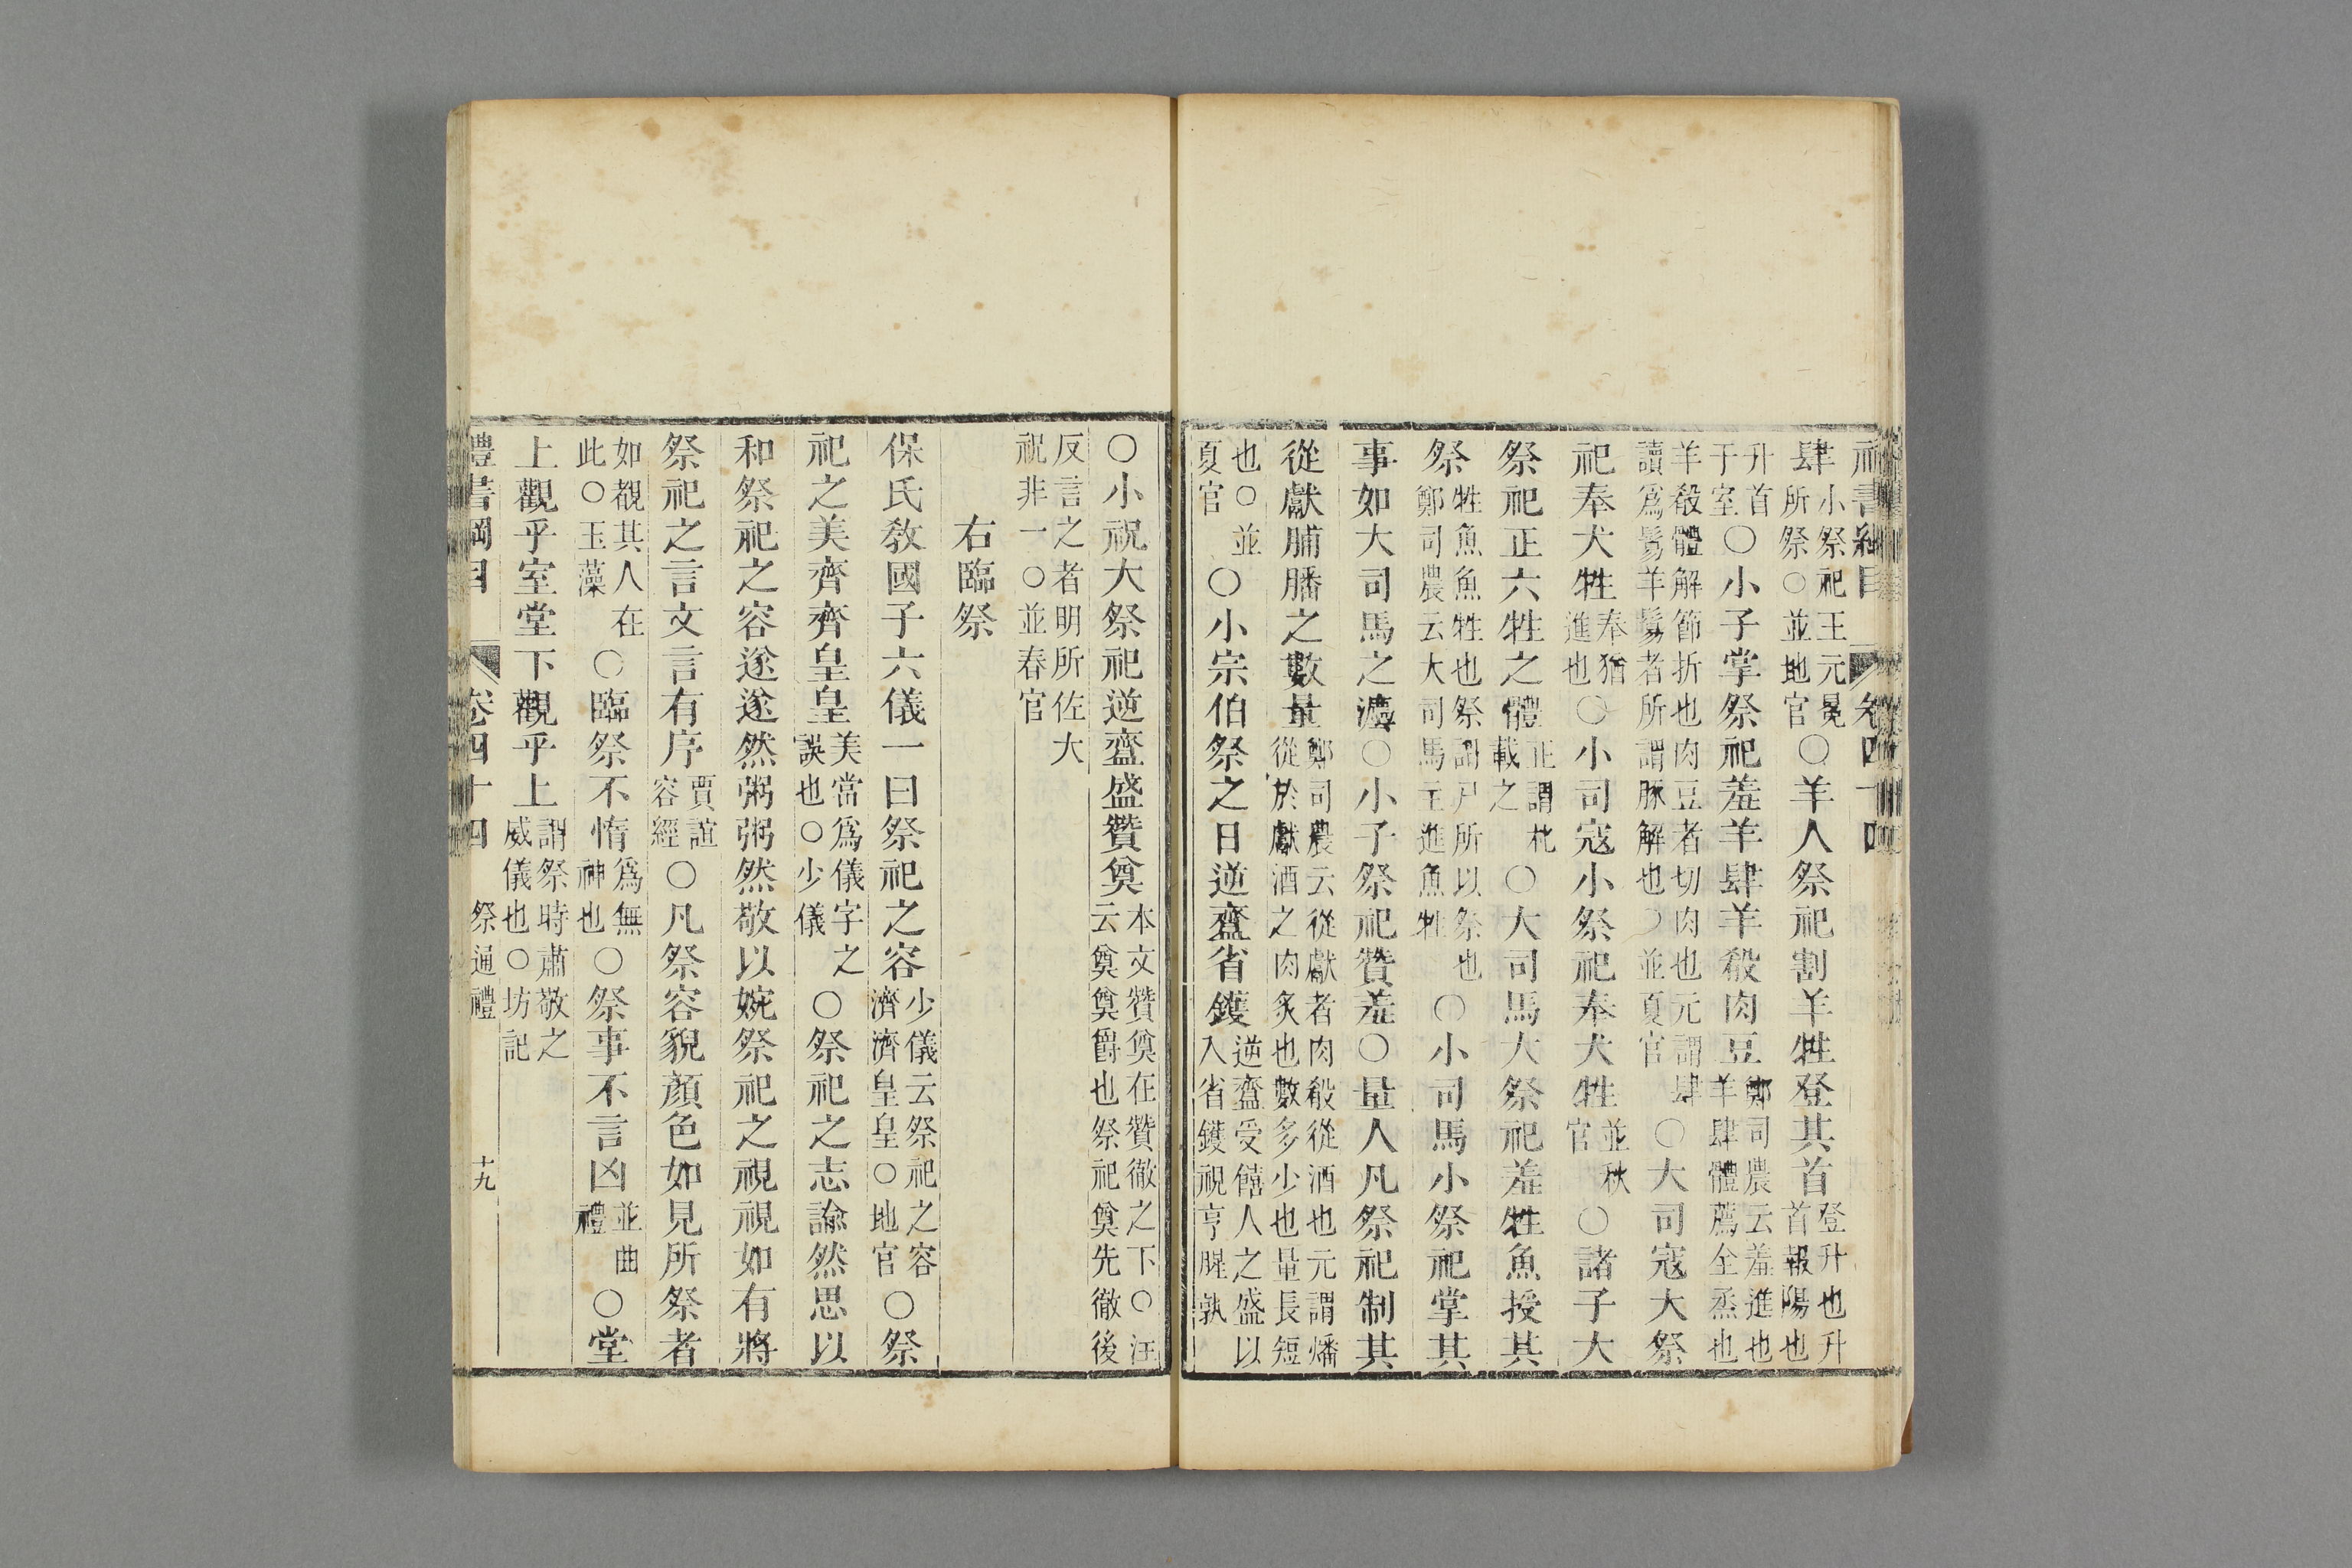 禮書綱目 卷四十四
肆小祭祀王元冕所祭○並地官○羊人祭祀割羊牲登其首登升也升首報陽也
升首于室○小子掌祭祀羞羊肆羊殽肉豆鄭司農云羞進也羊肆體薦全烝也
羊殽體解節折也肉豆者切肉也元謂肆讀爲鬄羊鬄者所謂豚解也○並夏官○大司寇大祭
祀奉犬牲奉猶進也○小司寇小祭祀奉犬牲並秋官○諸子大
祭祀正六牲之體正謂朼載之○大司馬大祭祀羞牲魚授其
祭牲魚魚牲也祭謂尸所以祭也鄭司農云大司馬主進魚牲○小司馬小祭祀掌其
事如大司馬之灋○小子祭祀贊羞○量人凡祭祀制其
從獻脯膰之數量鄭司農云從獻者肉殽從酒也元謂燔從於獻酒之肉炙也數多少也量長短
也○並夏官○小宗伯祭之日逆齍省鑊逆齍受饎人之盛以入省鑊視亨腥孰
○小祝大祭祀逆齍盛贊奠本文贊奠在贊徹之下○注云奠奠爵也祭祀奠先徹後
反言之者明所佐大祝非一○並春官
右臨祭
保氏敎國子六儀一曰祭祀之容少儀云祭祀之容濟濟皇皇○地官○祭
祀之美齊齊皇皇美當爲儀字之誤也○少儀○祭祀之志諭然思以
和祭祀之容遂遂然粥粥然敬以婉祭祀之視視如有將
祭祀之言文言有序賈誼容經○凡祭容貌顏色如見所祭者
如覩其人在此○玉藻○臨祭不惰爲無神也○祭事不言凶並曲禮○堂
上觀乎室堂下觀乎上謂祭時肅敬之威儀也○坊記
禮書綱目 卷四十四 祭通禮 十九